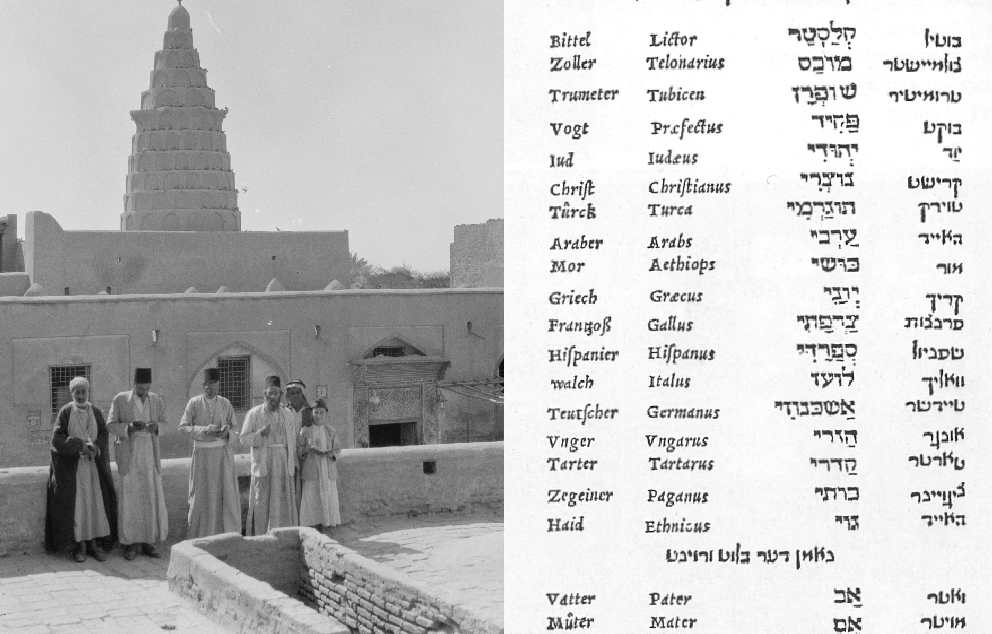 Bittel Lictor קלסטר בוטיל
Zoller Telonarius מוכס צולמיישטר
Trumeter Tubicen שופרן טרומיטיר
Vogt Præfectus פקיד בוקט
Iud Iudæus יהודי יוד
Christ Christianus נוצרי קרישט
Tůrck Turca תוגרמי טוירק
Araber Arabs ערבי האייד
Mor Aethiops כושי מור
Griech Græcus יוני קריך
Frantzoß Gallus צרפתי פרנצות
Hispanier Hispanus ספרדי שפניול
walch Italus לועז וואליך
Teutscher Germanus אשכנזי טייטשר
Vnger Vngarus הגרי אונגר
Tarter Tartarus קדרי טארטר
Zegeiner Paganus כותי ציגיינר
Haid Ethnicus גוי האייד
נאמן דער בלוט ורוינט
Vatter Pater אב ואטר
Můter Mater אם מויטר